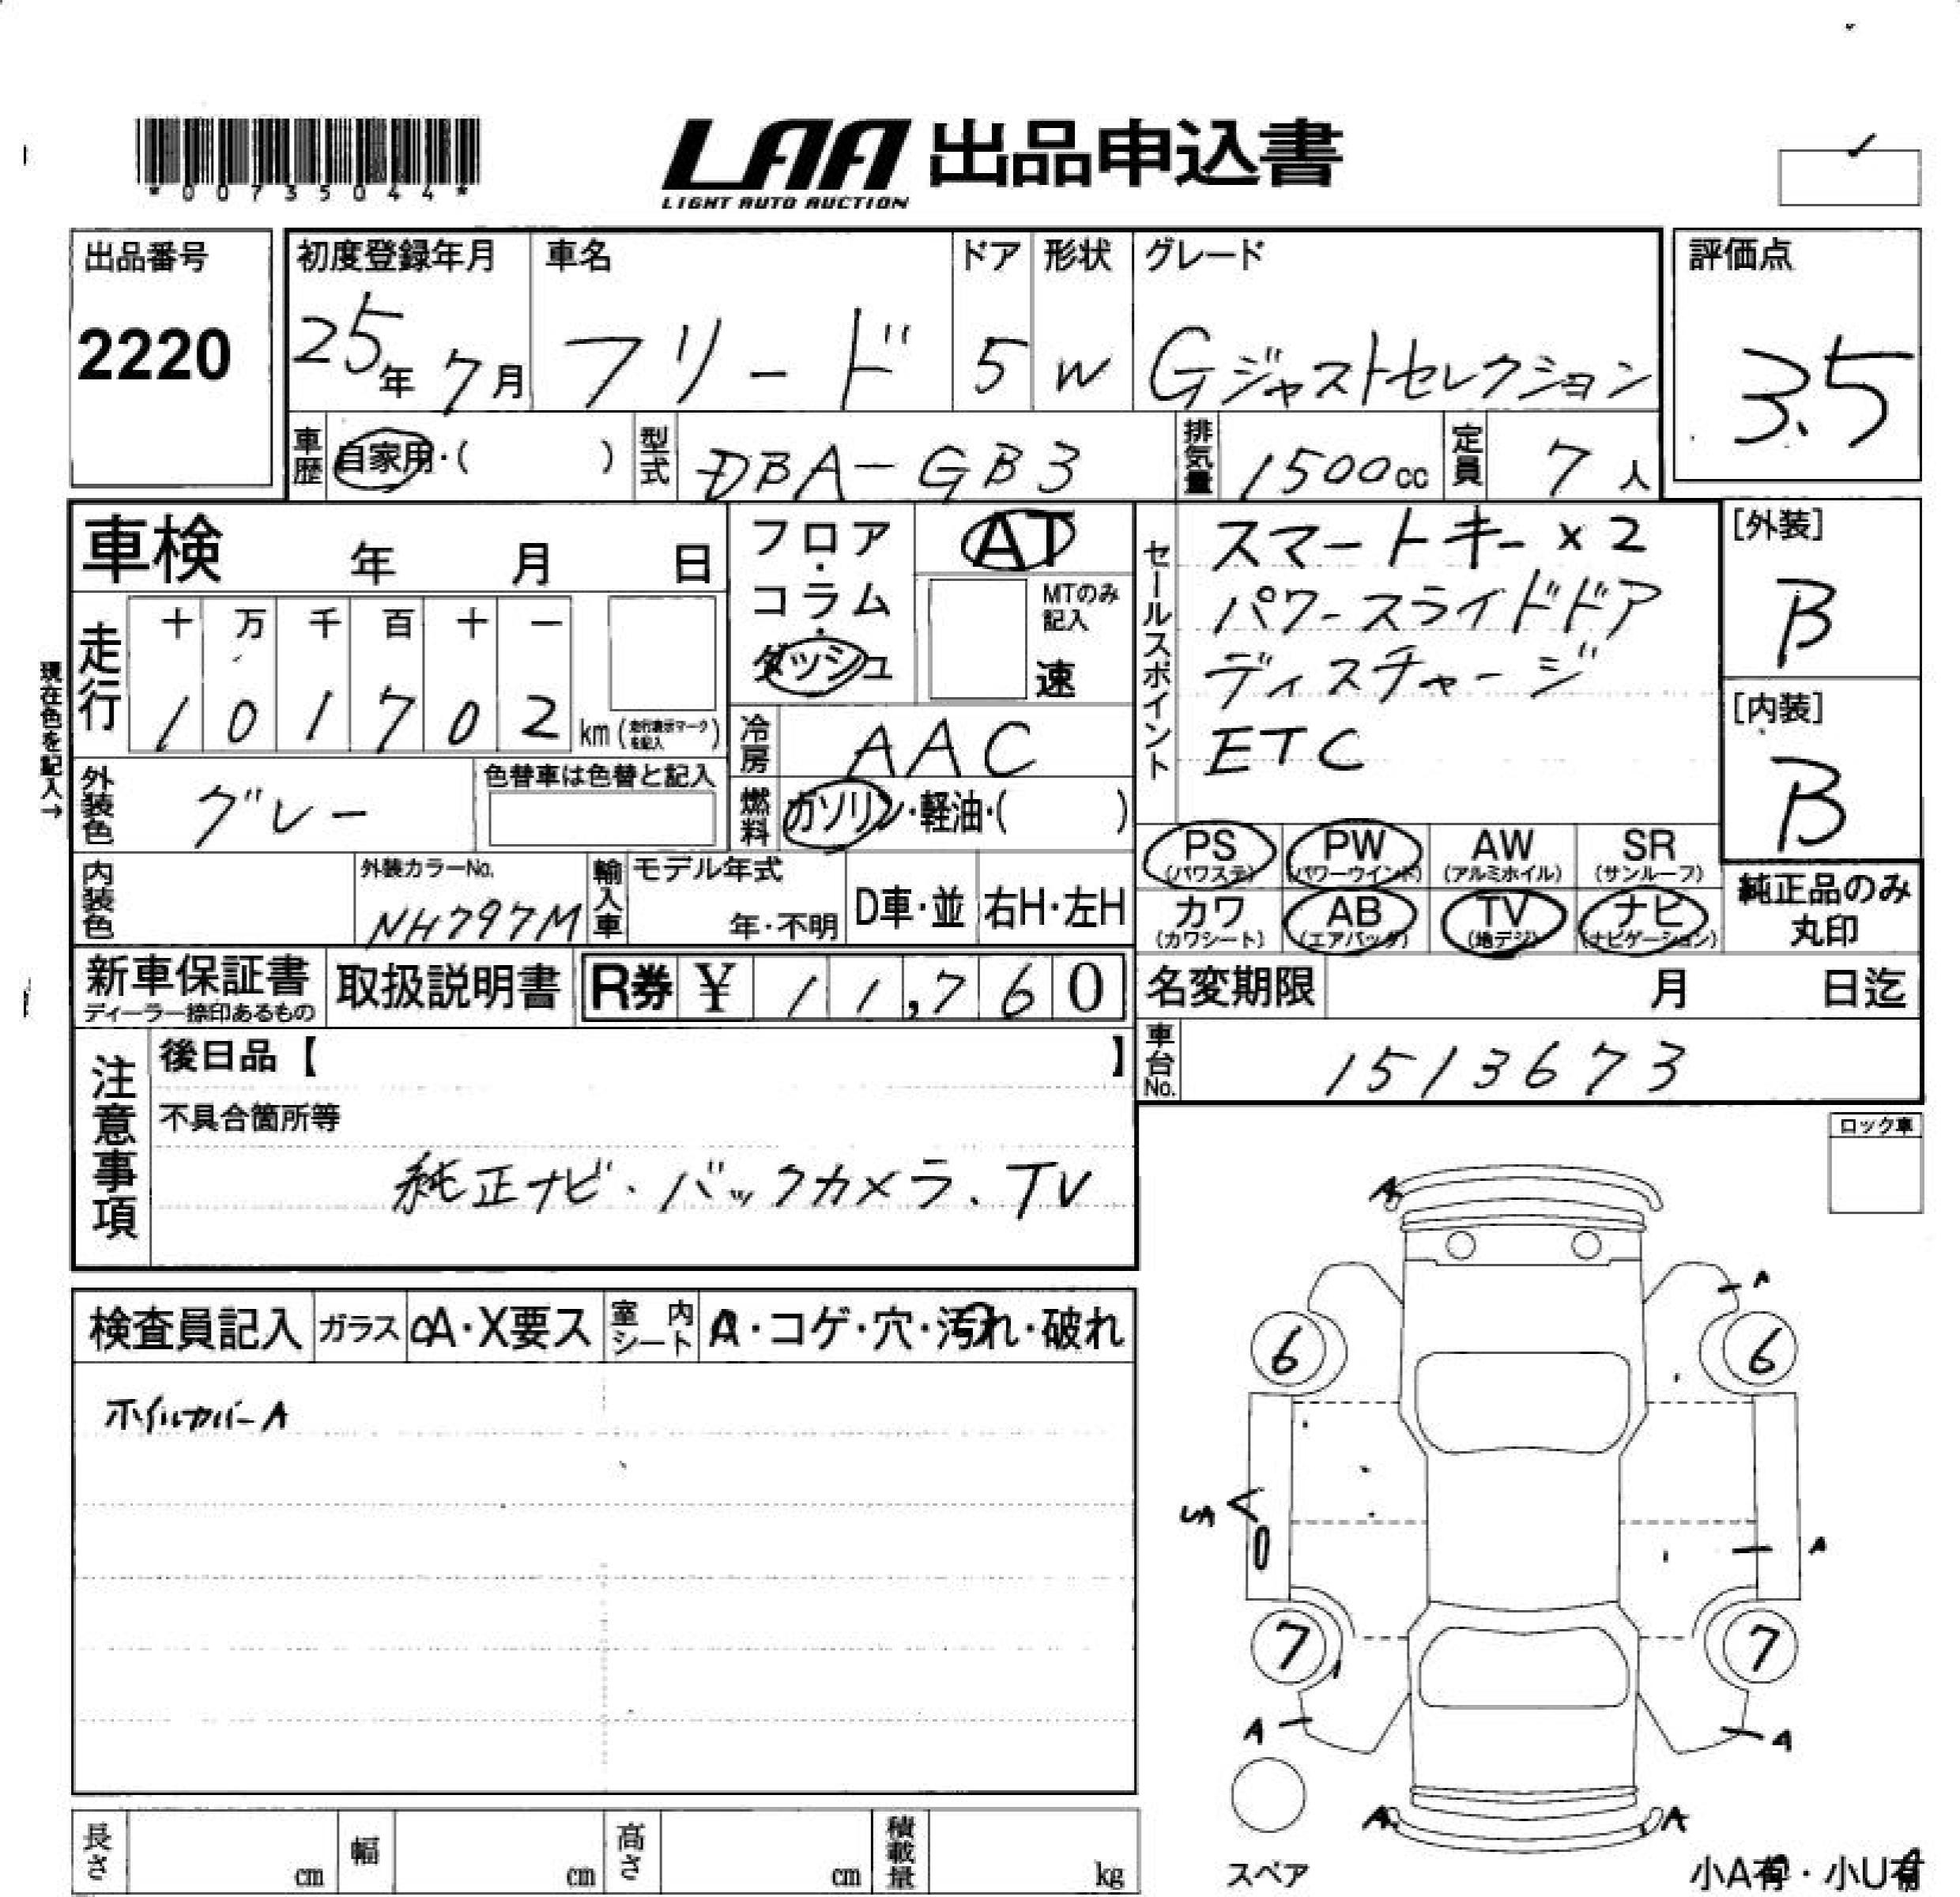 *00735044*
LAA 出品申込書
LIGHT AUTO AUCTION
出品番号
2220
初度登録年月
25年7月
車名
フリード
ドア
5
形状
W
グレード
Gジャストセレクション
評価点
3.5
車歴
自家用・( )
型式
DBA-GB3
排気量
1500cc
定員
7人
車検 年 月 日
フロア・コラム・ダッシュ
AT
MTのみ記入
速
セールスポイント
スマートキー×2
パワースライドドア
ディスチャージ
ETC
[外装]
B
[内装]
B
現在色を記入→
走行
十 万 千 百 十 一
1 0 1 7 0 2 km(走行表示マークを記入)
冷房
AAC
外装色
グレー
色替車は色替と記入
燃料
ガソリン・軽油・( )
PS (パワステ)
PW (パワーウインド)
AW (アルミホイル)
SR (サンルーフ)
カワ (カワシート)
AB (エアバッグ)
TV (地デジ)
ナビ (ナビゲーション)
純正品のみ
丸印
内装色
外装カラーNo.
NH797M
輸入車
モデル年式
年・不明
D車・並
右H・左H
新車保証書
ディーラー捺印あるもの
取扱説明書
R券 ¥ 11,760
名変期限 月 日迄
車台No.
1513673
注意事項
後日品【 】
不具合箇所等
純正ナビ・バックカメラ、TV
ロック車
検査員記入
ガラス
A・X要ス
室内シート
A・コゲ・穴・汚れ・破れ
ホイルカバーA
A
A
6
6
UA
A
7
7
A
A
A
A
スペア
小A有・小U有
長さ cm
幅 cm
高さ cm
積載量 kg